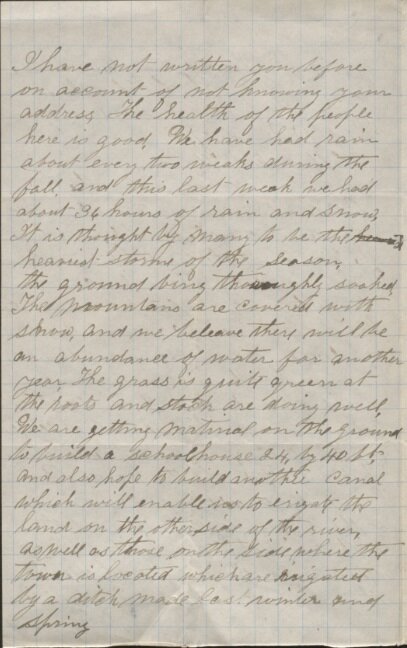 I have not written you before
on account of not knowing your
address, The health of the people
here is good, We have had rain
about every two weaks during the
fall. and this last week we had
about 36 hours of rain and snow,
It is thought by many to be the
heaviest storms of the season,
the ground bing thouroughly soaked
The mountains are covered with
snow, and we beleave there will be
an abundance of water for another
year, The grass is quite green at
the roots and stock are doing well,
We are getting material on the ground
to build a schoolhouse 24 by 40 ft,
and also hope to build another canal
which will enable us to erigate the
land on the other side of the river,
as well as those on the side where the
town is located which are irigated
by a ditch made last winter and
spring